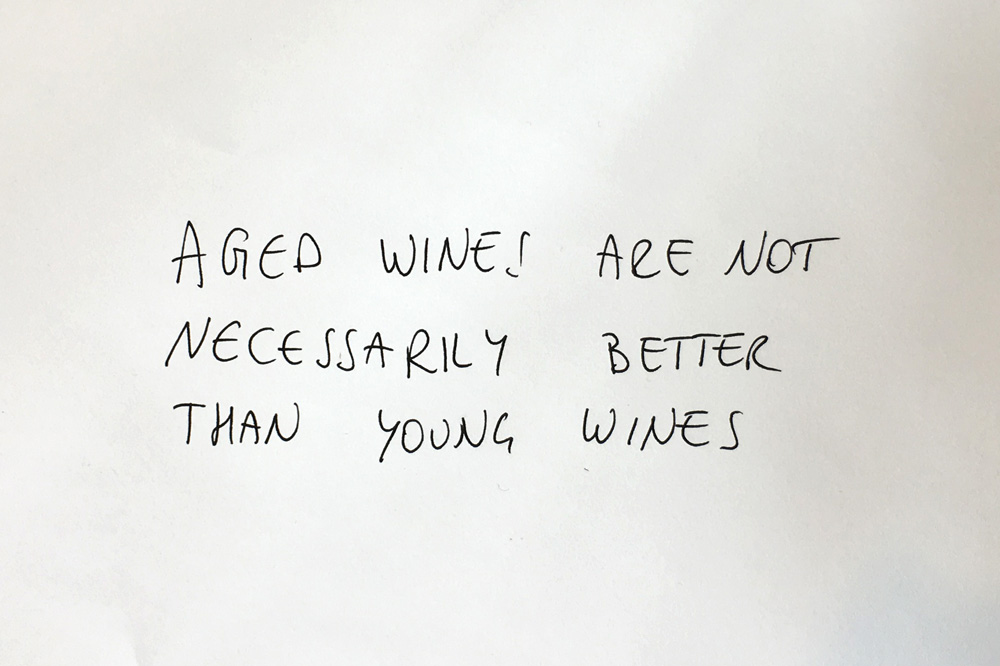 AGED WINES ARE NOT
NECESSARILY BETTER
THAN YOUNG WINES